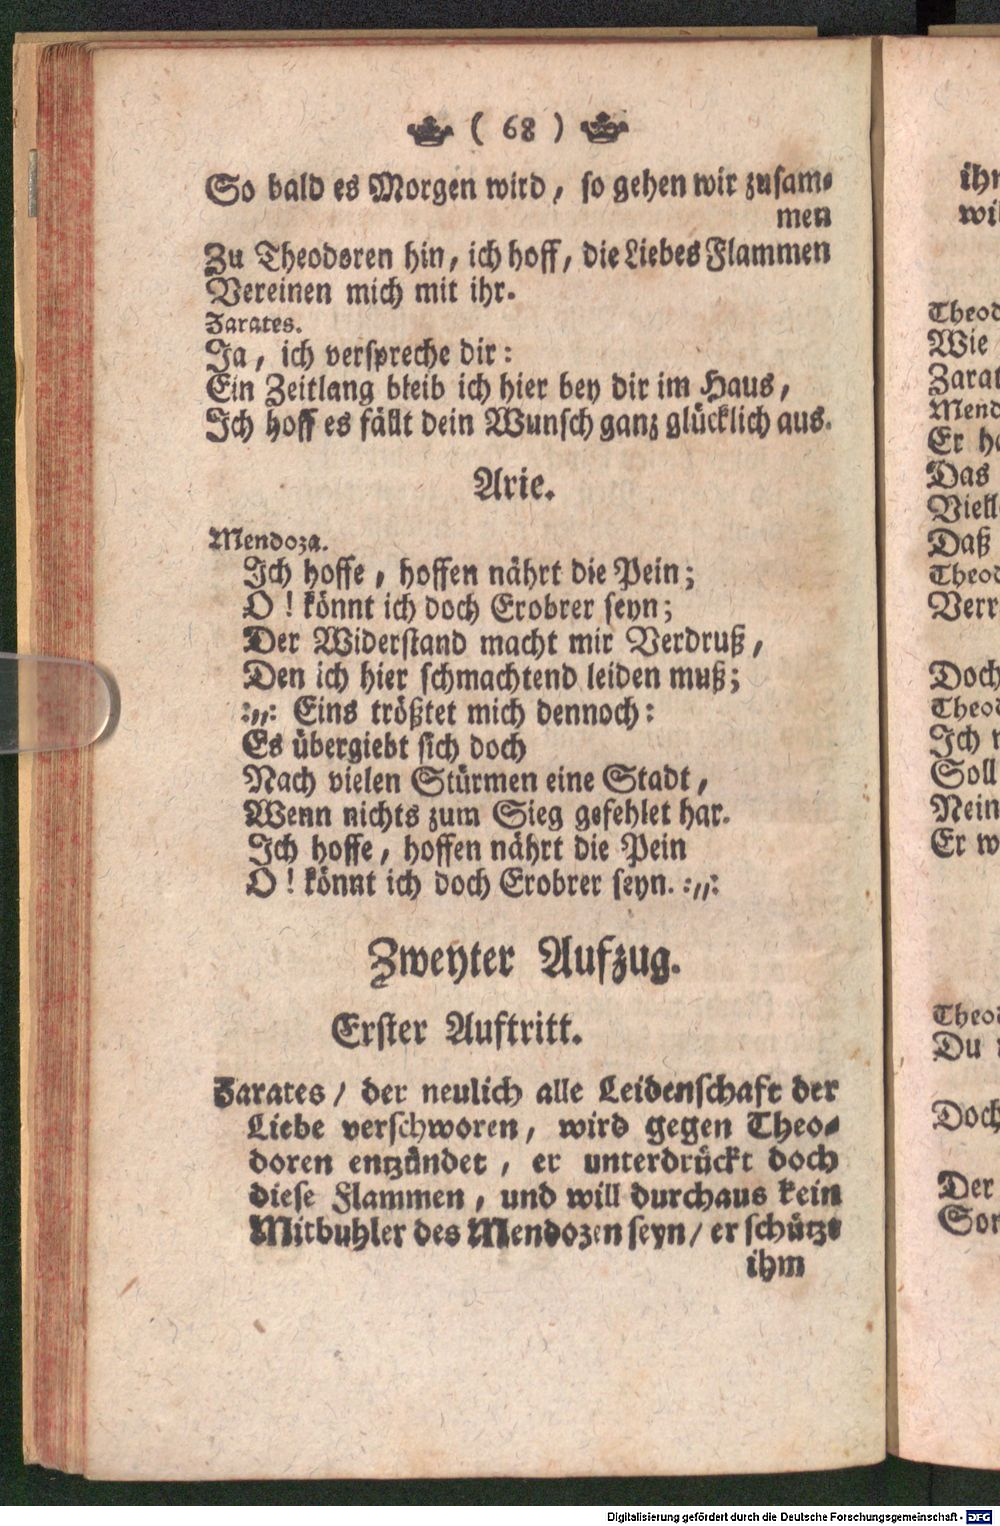 ( 68 )
So bald es Morgen wird, so gehen wir zusam-
men
Zu Theodoren hin, ich hoff, die Liebes Flammen
Vereinen mich mit ihr.
Zarates.
Ja, ich verspreche dir:
Ein Zeitlang bleib ich hier bey dir im Haus,
Ich hoff es fällt dein Wunsch ganz glücklich aus.
Arie.
Mendoza.
Ich hoffe, hoffen nährt die Pein;
O! könnt ich doch Erobrer seyn;
Der Widerstand macht mir Verdruß,
Den ich hier schmachtend leiden muß;
:,,: Eins trößtet mich dennoch:
Es übergiebt sich doch
Nach vielen Stürmen eine Stadt,
Wenn nichts zum Sieg gefehlet har.
Ich hoffe, hoffen nährt die Pein
O! könnt ich doch Erobrer seyn. :,,:
Zweyter Aufzug.
Erster Auftritt.
Zarates / der neulich alle Leidenschaft der
Liebe verschworen, wird gegen Theo-
doren entzündet, er unterdrückt doch
diese Flammen, und will durchaus kein
Mitbuhler des Mendozen seyn / er schützt
ihm
ihn
wil
Theod
Wie
Zarat
Mend
Er ha
Das
Viell
Daß
Theod
Verr
Doch
Theod
Ich
Soll
Nein
Er w
Theod
Du
Doch
Der
Son
Digitalisierung gefördert durch die Deutsche Forschungsgemeinschaft - DFG